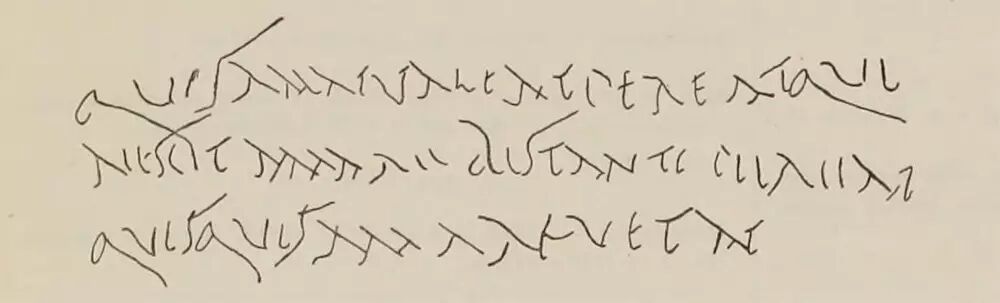 quis amat valeat pereat qui
nescit amare bis tanti pereat
quisquis amare vetat